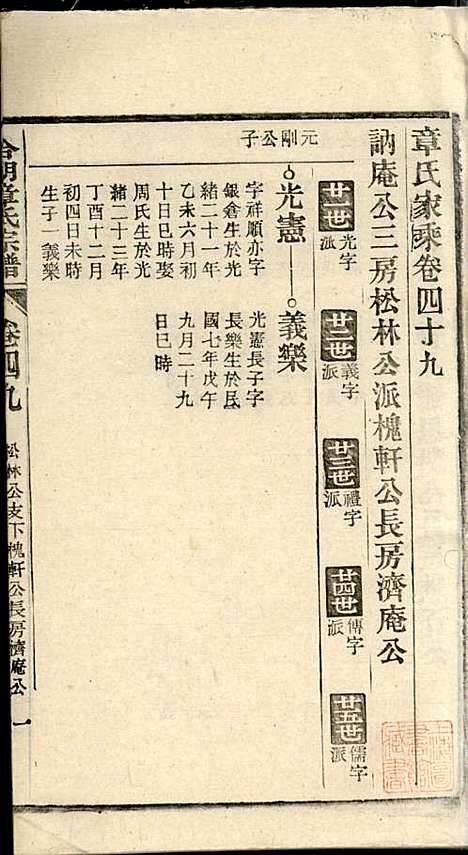 章氏家乘卷四十九
訥庵公三房松林公派槐軒公長房濟庵公
廿一世 光字派
廿二世 義字派
廿三世 禮字派
廿四世 傳字派
廿五世 儒字派
元剛公子
光憲
字祥順亦字
銀倉生於光
緒二十一年
乙未六月初
十日巳時娶
周氏生於光
緒二十三年
丁酉十二月
初四日未時
生子一義樂
義樂
光憲長子字
長樂生於民
國七年戊午
九月二十九
日巳時
合朋章氏宗譜
卷四九
松林公支下槐軒公長房濟庵公
一